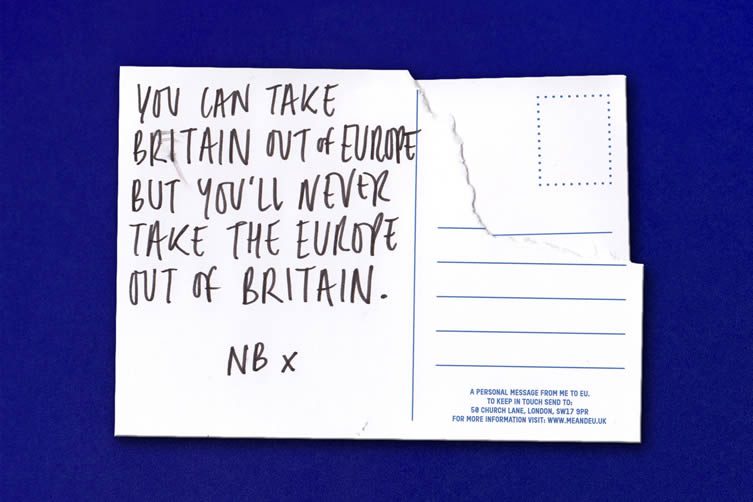 YOU CAN TAKE
BRITAIN OUT OF EUROPE
BUT YOU'LL NEVER
TAKE THE EUROPE
OUT OF BRITAIN.
NB x
A PERSONAL MESSAGE FROM ME TO EU.
TO KEEP IN TOUCH SEND TO:
58 CHURCH LANE, LONDON, SW17 9PR
FOR MORE INFORMATION VISIT: WWW.MEANDEU.UK